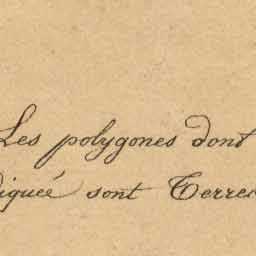 Les polygones dont
diquée sont Terre